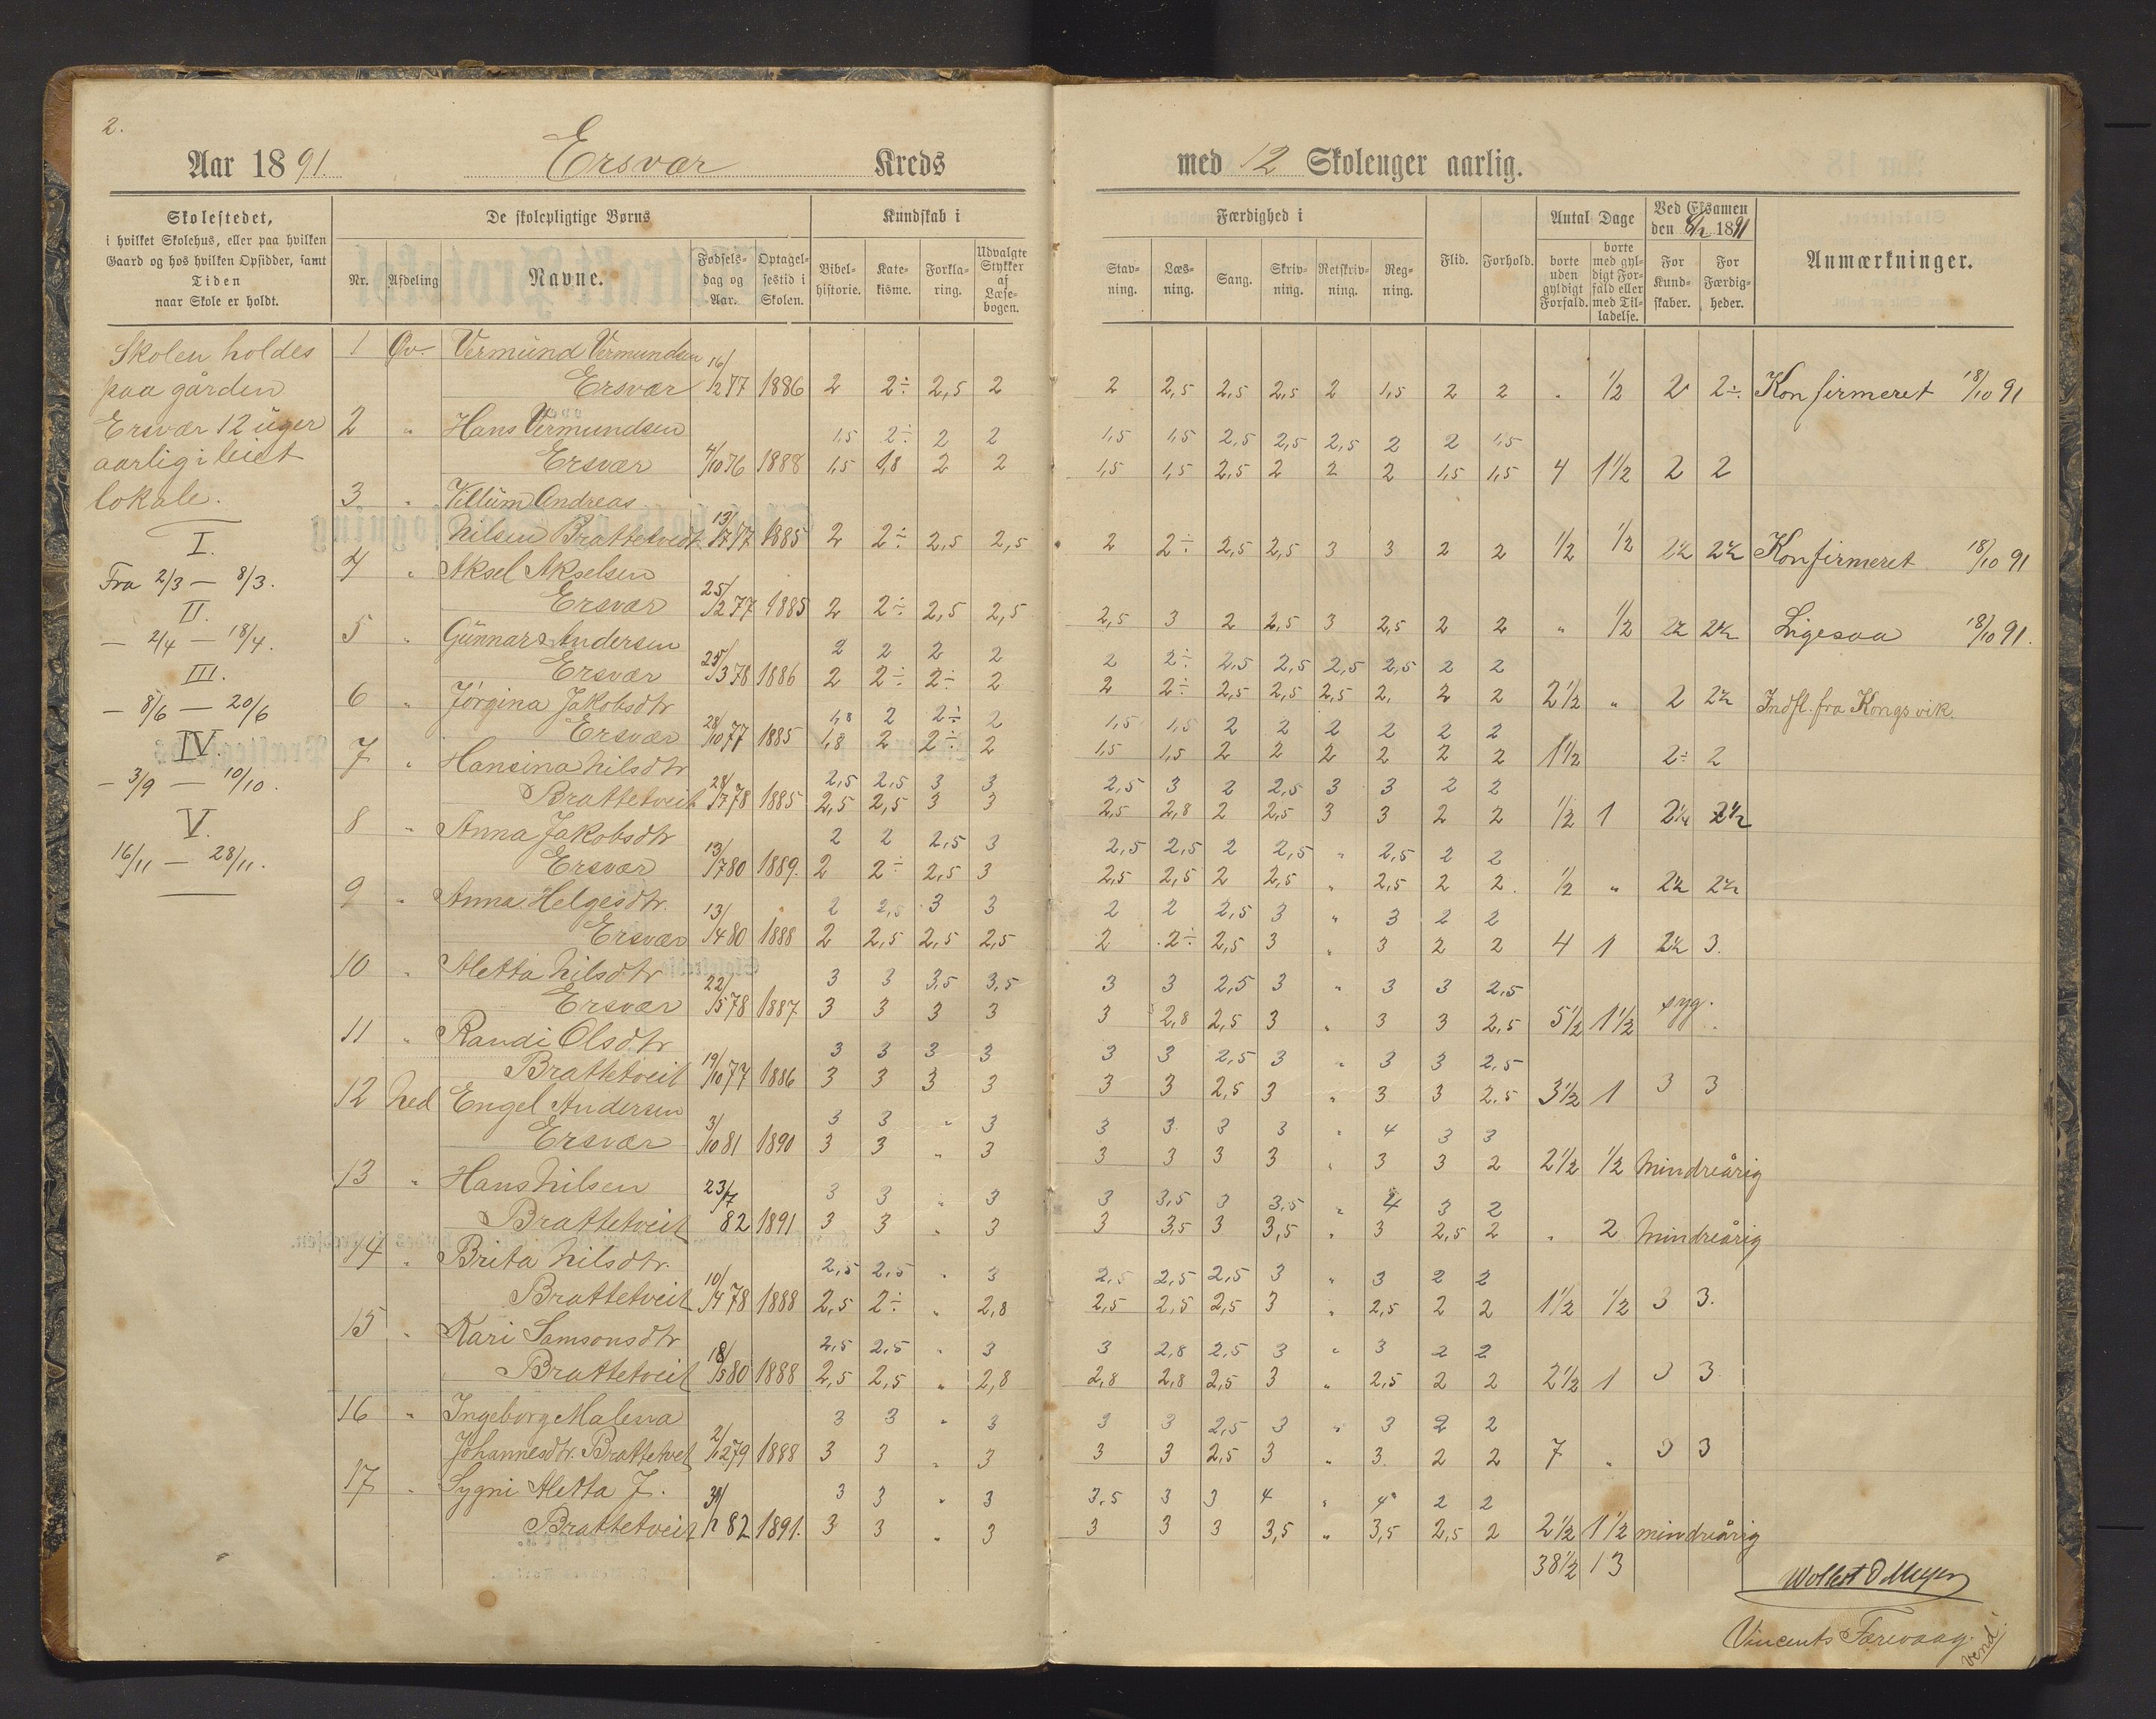 2.
Aar 1891. Ersvær Kreds
Skolestedet,
i hvilket Skolehus, eller paa hvilken
Gaard og hos hvilken Opsidder, samt
Tiden
naar Skole er holdt.
De skolepligtige Børns
Nr. Afdeling Navne. Fødsels-dag og Aar. Optagel-sestid i Skolen.
Kundskab i
Bibel-historie. Kate-kisme. Forkla-ring. Udvalgte Stykker af Læse-bogen.
Skolen holdes
paa gården
Ersvær 12 uger
aarlig i leiet
lokale.
I.
Fra 2/3 — 8/3.
II.
— 2/4 — 18/4.
III.
— 8/6 — 20/6
IV.
— 3/9 — 10/10.
V.
16/11 — 28/11.
1 Øv. Vermund Vermundsen
Ersvær 16/12 77 1886 2 2÷ 2,5 2
2 " Hans Vermundsen
1,5 2÷ 2 2
Ersvær 4/10 76 1888 1,5 1,8 2 2
3 " Villum Andreas
Nilsen Brattetveit 13/7 77 1885 2 2÷ 2,5 2,5
4 " Aksel Akselsen
Ersvær 25/12 77 1885 2 2÷ 2,5 2,5
5 " Gunnar Andersen
2 2 2 2
Ersvær 25/3 78 1886 2 2÷ 2÷ 2
6 " Jørgina Jakobsdtr
1,8 2 2÷ 2
Ersvær 28/10 77 1885 1,8 2 2÷ 2
7 " Hansina Nilsdtr
2,5 2,5 3 3
Brattetveit 28/7 78 1885 2,5 2,5 3 3
8 " Anna Jakobsdtr
2 2 2,5 3
Ersvær 13/7 80 1889. 2 2÷ 2,5 3
9 " Anna Helgesdtr.
2 2,5 3 3
Ersvær 13/4 80 1888 2 2,5 2,5 2,5
10 " Aletta Nilsdtr
3 3 3,5 3,5
Ersvær 22/5 78 1887 3 3 3 3
11 " Randi Olsdtr
3 3 3 3
Brattetveit 19/10 77 1886 3 3 3 3
12 Ned Engel Andersen
3 3 " 3
Ersvær 3/10 81 1890 3 3 " 3
13 " Hans Nilsen
3 3 " 3
Brattetveit 23/7 82 1891 3 3 " 3
14 " Brita Nilsdtr.
2,5 2,5 " 3
Brattetveit 10/4 78 1888 2,5 2÷ " 2,8
15 " Kari Samsonsdtr
2,5 2,5 " 3
Brattetveit 18/5 80 1888 2,5 2,5 " 2,8
16 " Ingeborg Malena
3 3 " 3
Johannesdtr. Brattetvet 2/12 79 1888 3 3 " 3
17 " Sygni Aletta J.
3 3 " 3
Brattetveit 82 1891. 3 3 " 3
med 12 Skoleuger aarlig.
Færdighed i
Stav-ning. Læs-ning. Sang. Skriv-ning. Retskriv-ning. Reg-ning. Flid. Forhold.
Antal Dage
borte uden gyldigt Forfald. borte med gyl-digt For-fald eller med Til-ladelse.
Ved Eksamen
den 1891
For Kund-skaber. For Færdig-heder.
Anmærkninger.
2 2,5 2,5 2,5 2 1,5 2 2 " 1/2 2 2÷. Konfirmeret 18/10 91
1,5 1,5 2,5 2,5 2,5 2 2 1,5
1,5 1,5 2,5 2 2 2 1,5 1,5 4 1 1/2 2 2
2 2÷ 2,5 2,5 3 3 2 2 1/2 1/2 2½ 2½ Konfirmeret 18/10 91
2,5 3 2 2,5 3 2,5 2 2 " 1/2 2½ 2½ Ligesaa 18/10 91.
2 2÷ 2,5 2,5 2,5 2,5 2 2
2 2÷ 2,5 2,5 2,5 2, 2 2 2 1/2 " 2 2½ Indfl. fra Kongsvik.
1,5 1,5 2 2 2 2 2 2
1,5 1,5 2 2 2 2 2 2 1 1/2 2÷ 2
2,5 3 2 2,5 3 3 2 2
2,5 2,8 2 2,5 3 3 2 2 1/2 1 2¼ 2½
2,5 2,5 2 2,5 " 2,5 2 2
2,5 2,5 2 2,5 " 2,5 2 2. 1/2 " 2½ 2½
2 2 2,5 3 " 3 2 2
2 2÷ 2,5 3 " 3 2 2 4 1 2½ 3.
3 3 2,5 3 " 3 3 2,5
3 2,8 2,5 3 " 3 3 2,5 5 1/2 1 1/2 syg.
3 3 2,5 3 " 3 3 2,5
3 3 2,5 3 " 3 3 2,5 3 1/2 1 3 3
3 3 3 3 " 4 3 3
3 3 3 3 " 3 3 2 2 1/2 1/2 Mindreårig
3 3,5 3 3,5 " 4 3 2
3 3,5 3 3,5 " 3 2,5 2 " 2 Mindreårig
2,5 2,5 2,5 3 " 3 2 2
2,5 2,5 2,5 3 " 2,5 2 2 1 1/2 1/2 3 3.
3 2,8 2,5 3 " 3 2 2
2,8 2,8 2,5 3 " 2,5 2 2 2 1/2 1 3 3
3 3 2,5 3 " 3 2 2
3 3 2,5 3 " 3 2 2 7 " 3 3
3,5 3 3 4 " 4 2 2
3 3 3 3,5 " 3,5 2,5 2 2 1/2 1 1/2 mindreårig
38 1/2 13
Wollert D Meyer
Vincents Færevaag.
vend.